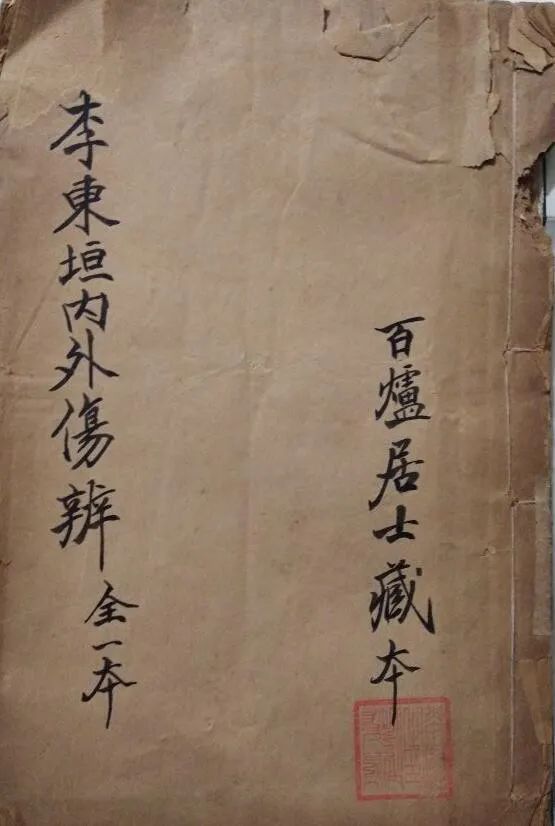 百爐居士藏本
李東垣内外傷辨 全一本